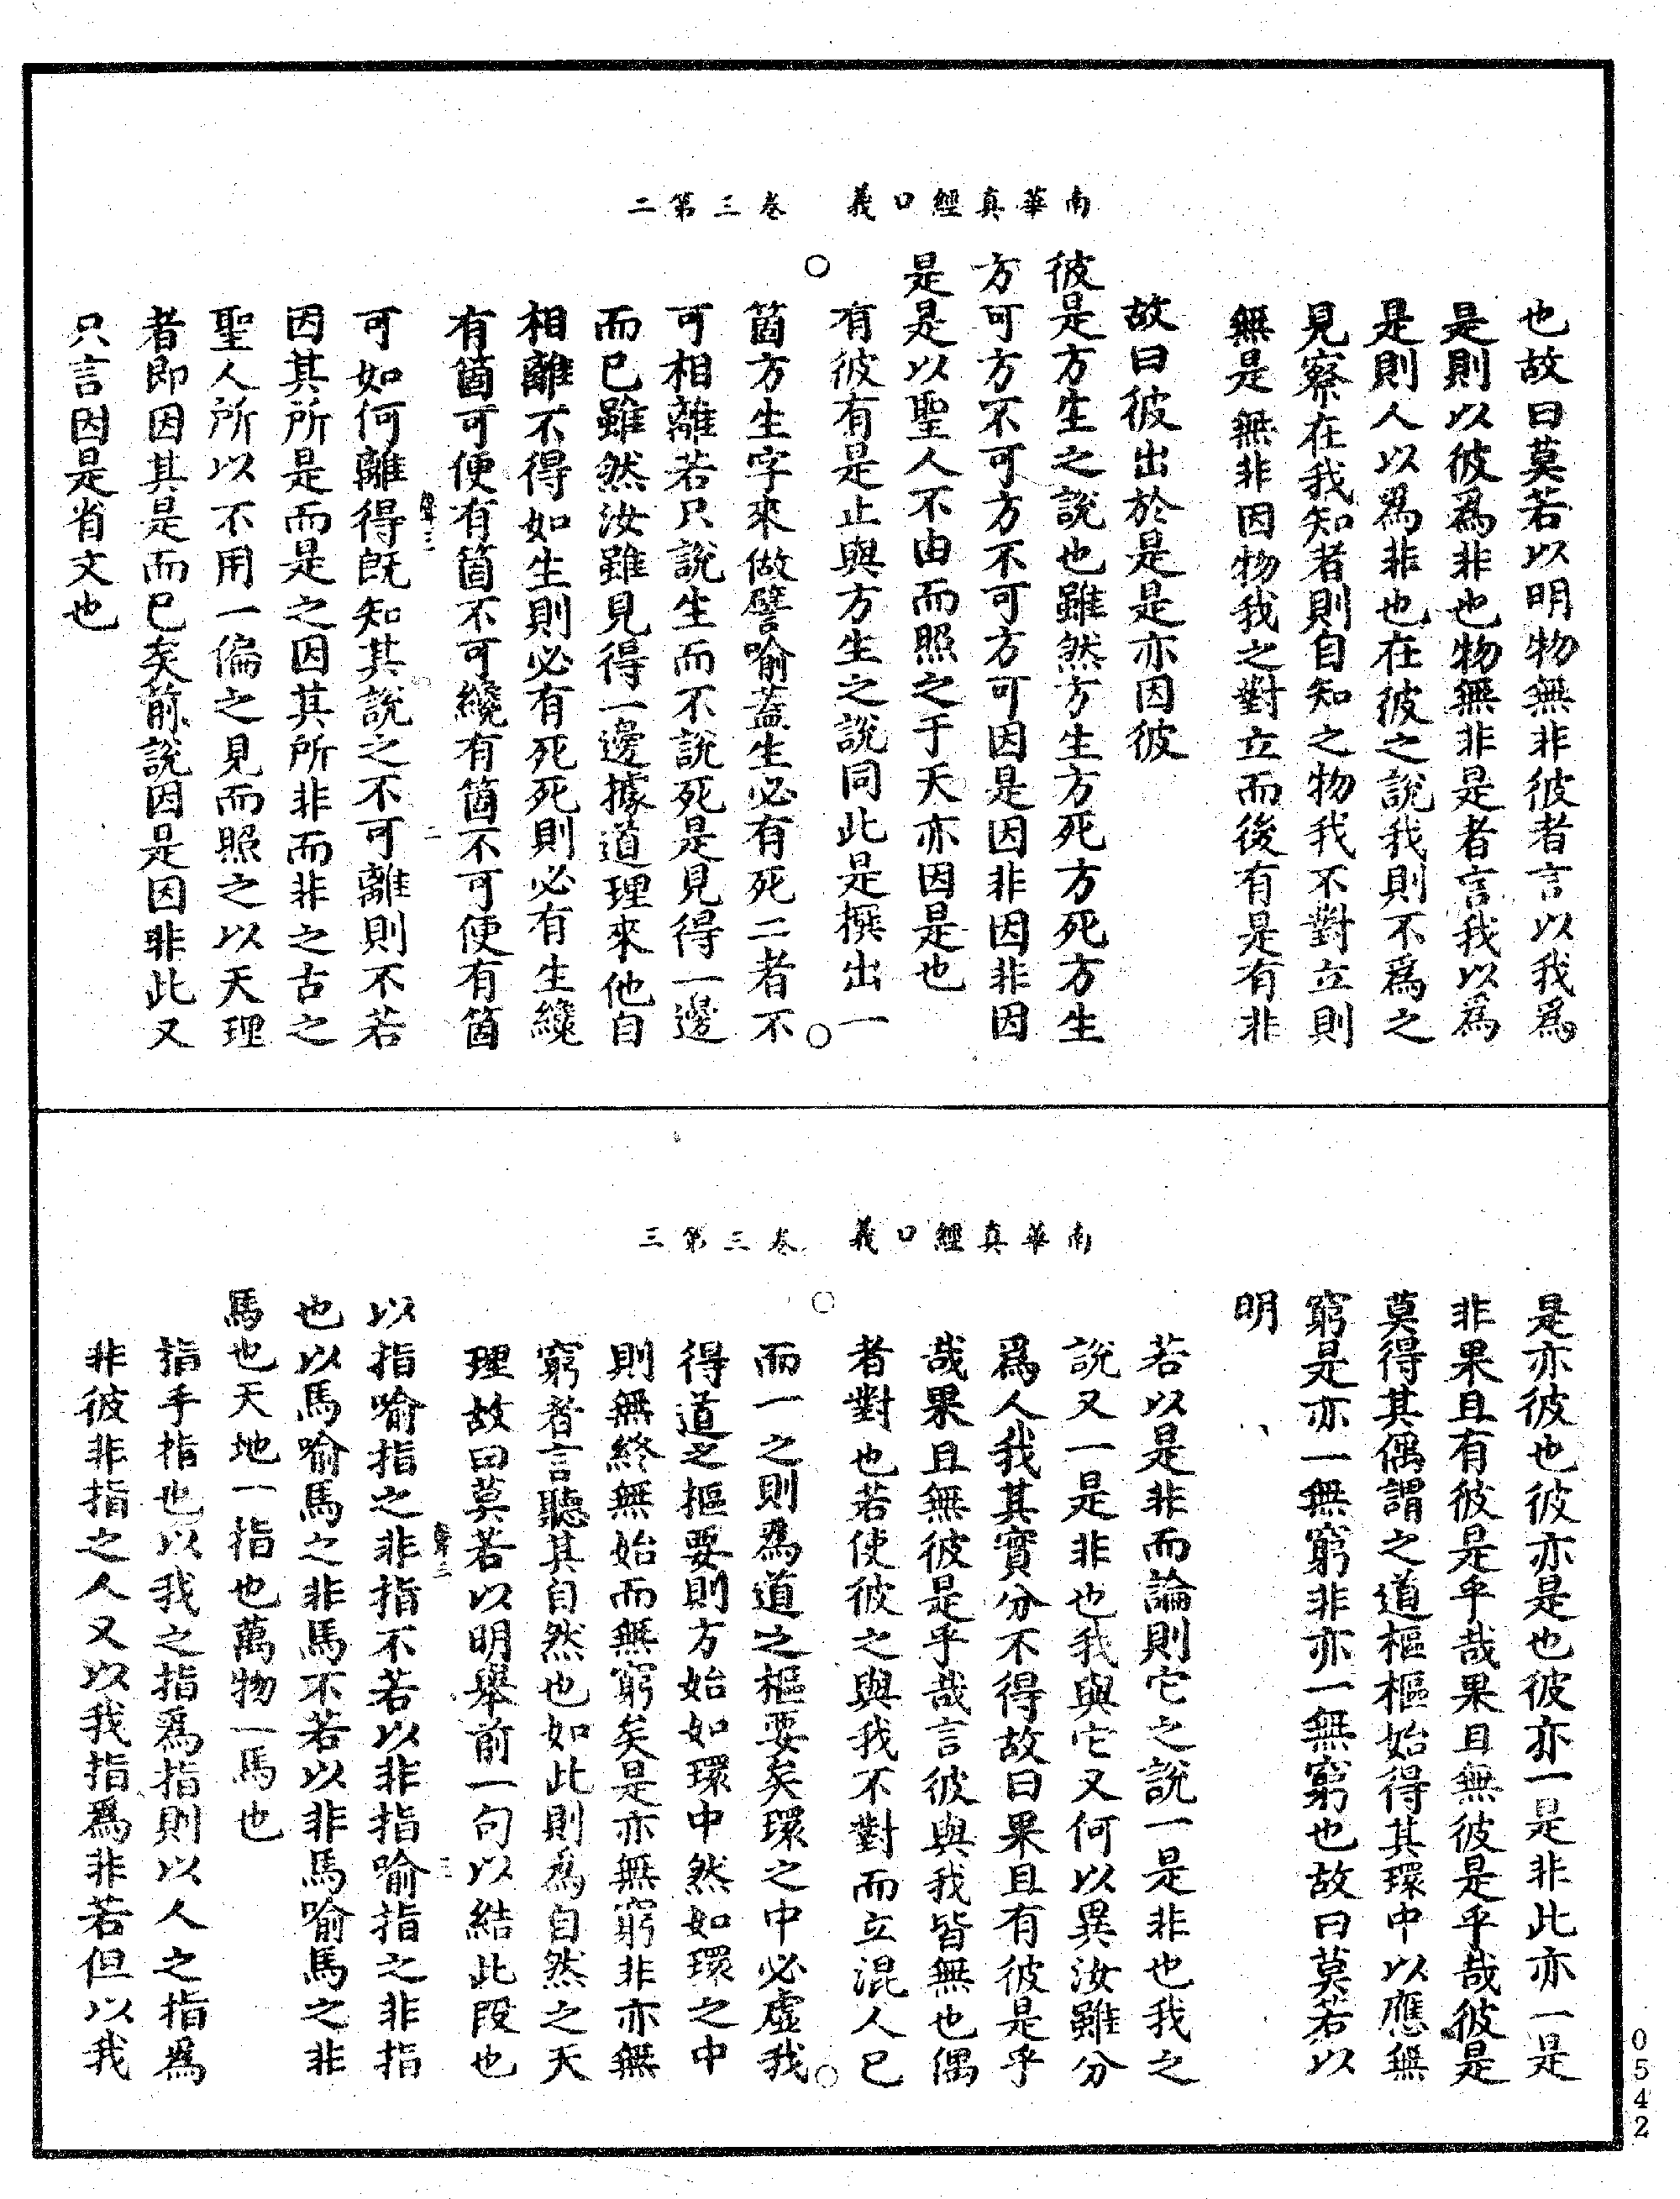 南華真經口義　卷三第二
也故曰莫若以明物無非彼者言以我爲
是則以彼爲非也物無非是者言我以爲
是則人以爲非也在彼之說我則不爲之
見察在我知者則自知之物我不對立則
無是無非因物我之對立而後有是有非
故曰彼出於是是亦因彼
彼是方生之說也雖然方生方死方死方生
方可方不可方不可方可因是因非因非因
是是以聖人不由而照之于天亦因是也
有彼有是止與方生之說同此是撰出一
箇方生字來做譬喻蓋生必有死二者不
可相離若只說生而不說死是見得一邊
而已雖然汝雖見得一邊據道理來他自
相離不得如生則必有死死則必有生纔
有箇可便有箇不可纔有箇不可便有箇
可如何離得既知其說之不可離則不若
因其所是而是之因其所非而非之古之
聖人所以不用一偏之見而照之以天理
者即因其是而已矣前說因是因非此又
只言因是省文也
南華真經口義　卷三第三
是亦彼也彼亦是也彼亦一是非此亦一是
非果且有彼是乎哉果且無彼是乎哉彼是
莫得其偶謂之道樞樞始得其環中以應無
窮是亦一無窮非亦一無窮也故曰莫若以
明
若以是非而論則它之說一是非也我之
說又一是非也我與它又何以異汝雖分
爲人我其實分不得故曰果且有彼是乎
哉果且無彼是乎哉言彼與我皆無也偶
者對也若使彼之與我不對而立混人已
而一之則爲道之樞要矣環之中必虛我
得道之樞要則方始如環中然如環之中
則無終無始而無窮矣是亦無窮非亦無
窮者言聽其自然也如此則爲自然之天
理故曰莫若以明舉前一句以結此段也
以指喻指之非指不若以非指喻指之非指
也以馬喻馬之非馬不若以非馬喻馬之非
馬也天地一指也萬物一馬也
指手指也以我之指爲指則以人之指爲
非彼非指之人又以我指爲非若但以我
0542